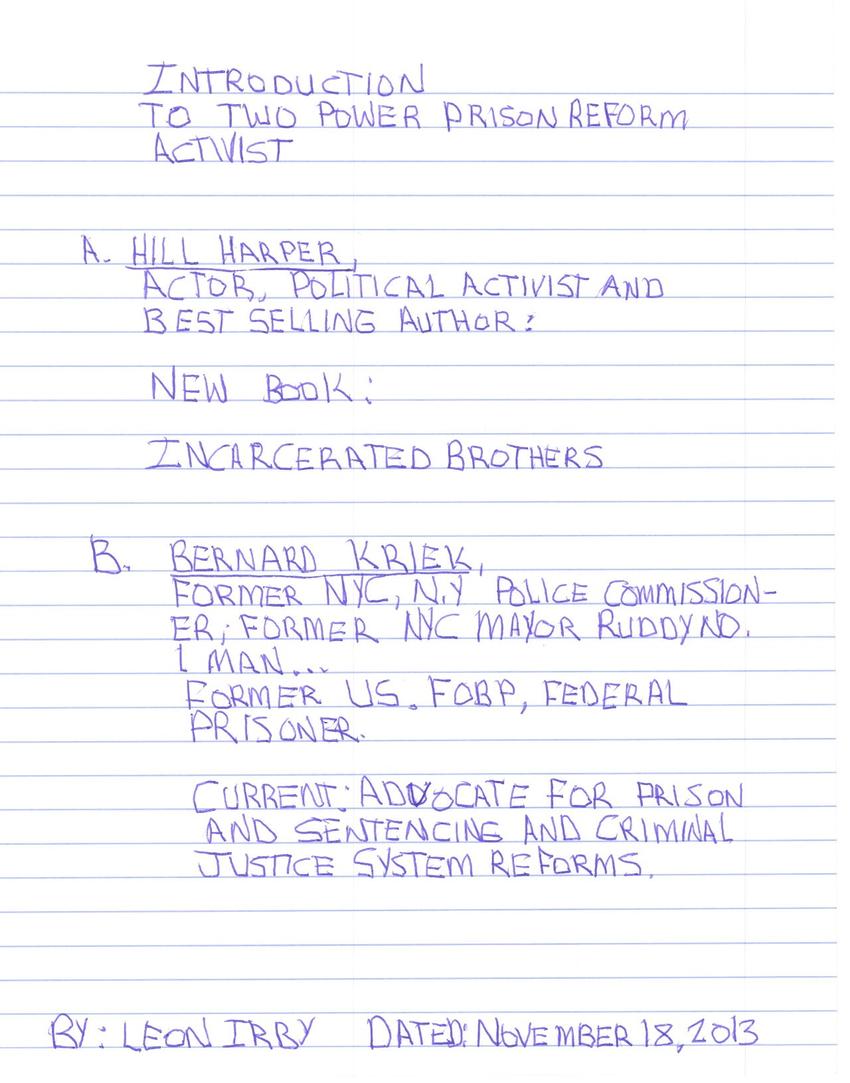 INTRODUCTION
TO TWO POWER PRISON REFORM
ACTIVIST
A. HILL HARPER,
ACTOR, POLITICAL ACTIVIST AND
BEST SELLING AUTHOR:
NEW BOOK:
INCARCERATED BROTHERS
B. BERNARD KRIEK,
FORMER NYC, N.Y POLICE COMMISSION-
ER; FORMER NYC MAYOR RUDDY NO.
1 MAN...
FORMER US. FOBP, FEDERAL
PRISONER.
CURRENT: ADVOCATE FOR PRISON
AND SENTENCING AND CRIMINAL
JUSTICE SYSTEM REFORMS.
BY: LEON IRBY DATED: NOVEMBER 18, 2013